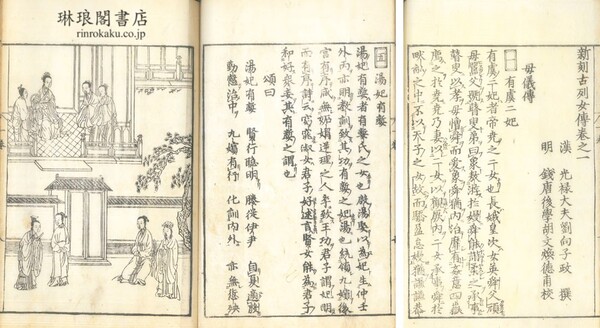 琳琅閣書店
rinrokaku.co.jp
新刻古列女傳卷之一
漢 光禄大夫劉向子政 撰
明 錢唐後學胡文煥德甫校
母儀傳
有虞二妃
有虞二妃者帝堯之二女也長娥皇次女英舜父頑
母嚚父號瞽叟弟曰象敖游於嫚舜能諧柔之承事
瞽叟以孝母憎舜而愛象舜猶内治靡有姦意四嶽
薦之於堯堯乃妻以二女以觀厥内二女承事舜於
畎畝之中不以天子之女故而驕盈怠嫚猶謙謙恭
五 湯妃有㜪
湯妃有㜪者有㜪氏之女也殷湯娶以為妃生仲壬
外丙亦明教訓致其功有㜪之妃湯也統領九嬪後
宮有序咸無妬媢逆理之人卒致王功君子謂妃明
而有序詩云窈窕淑女君子好逑言賢女能為君子
和好衆妾其有㜪之謂也
頌曰
湯妃有㜪 賢行聰明 媵從伊尹 自夏適殷
勤愨治中 九嬪有行 化訓内外 亦無愆殃